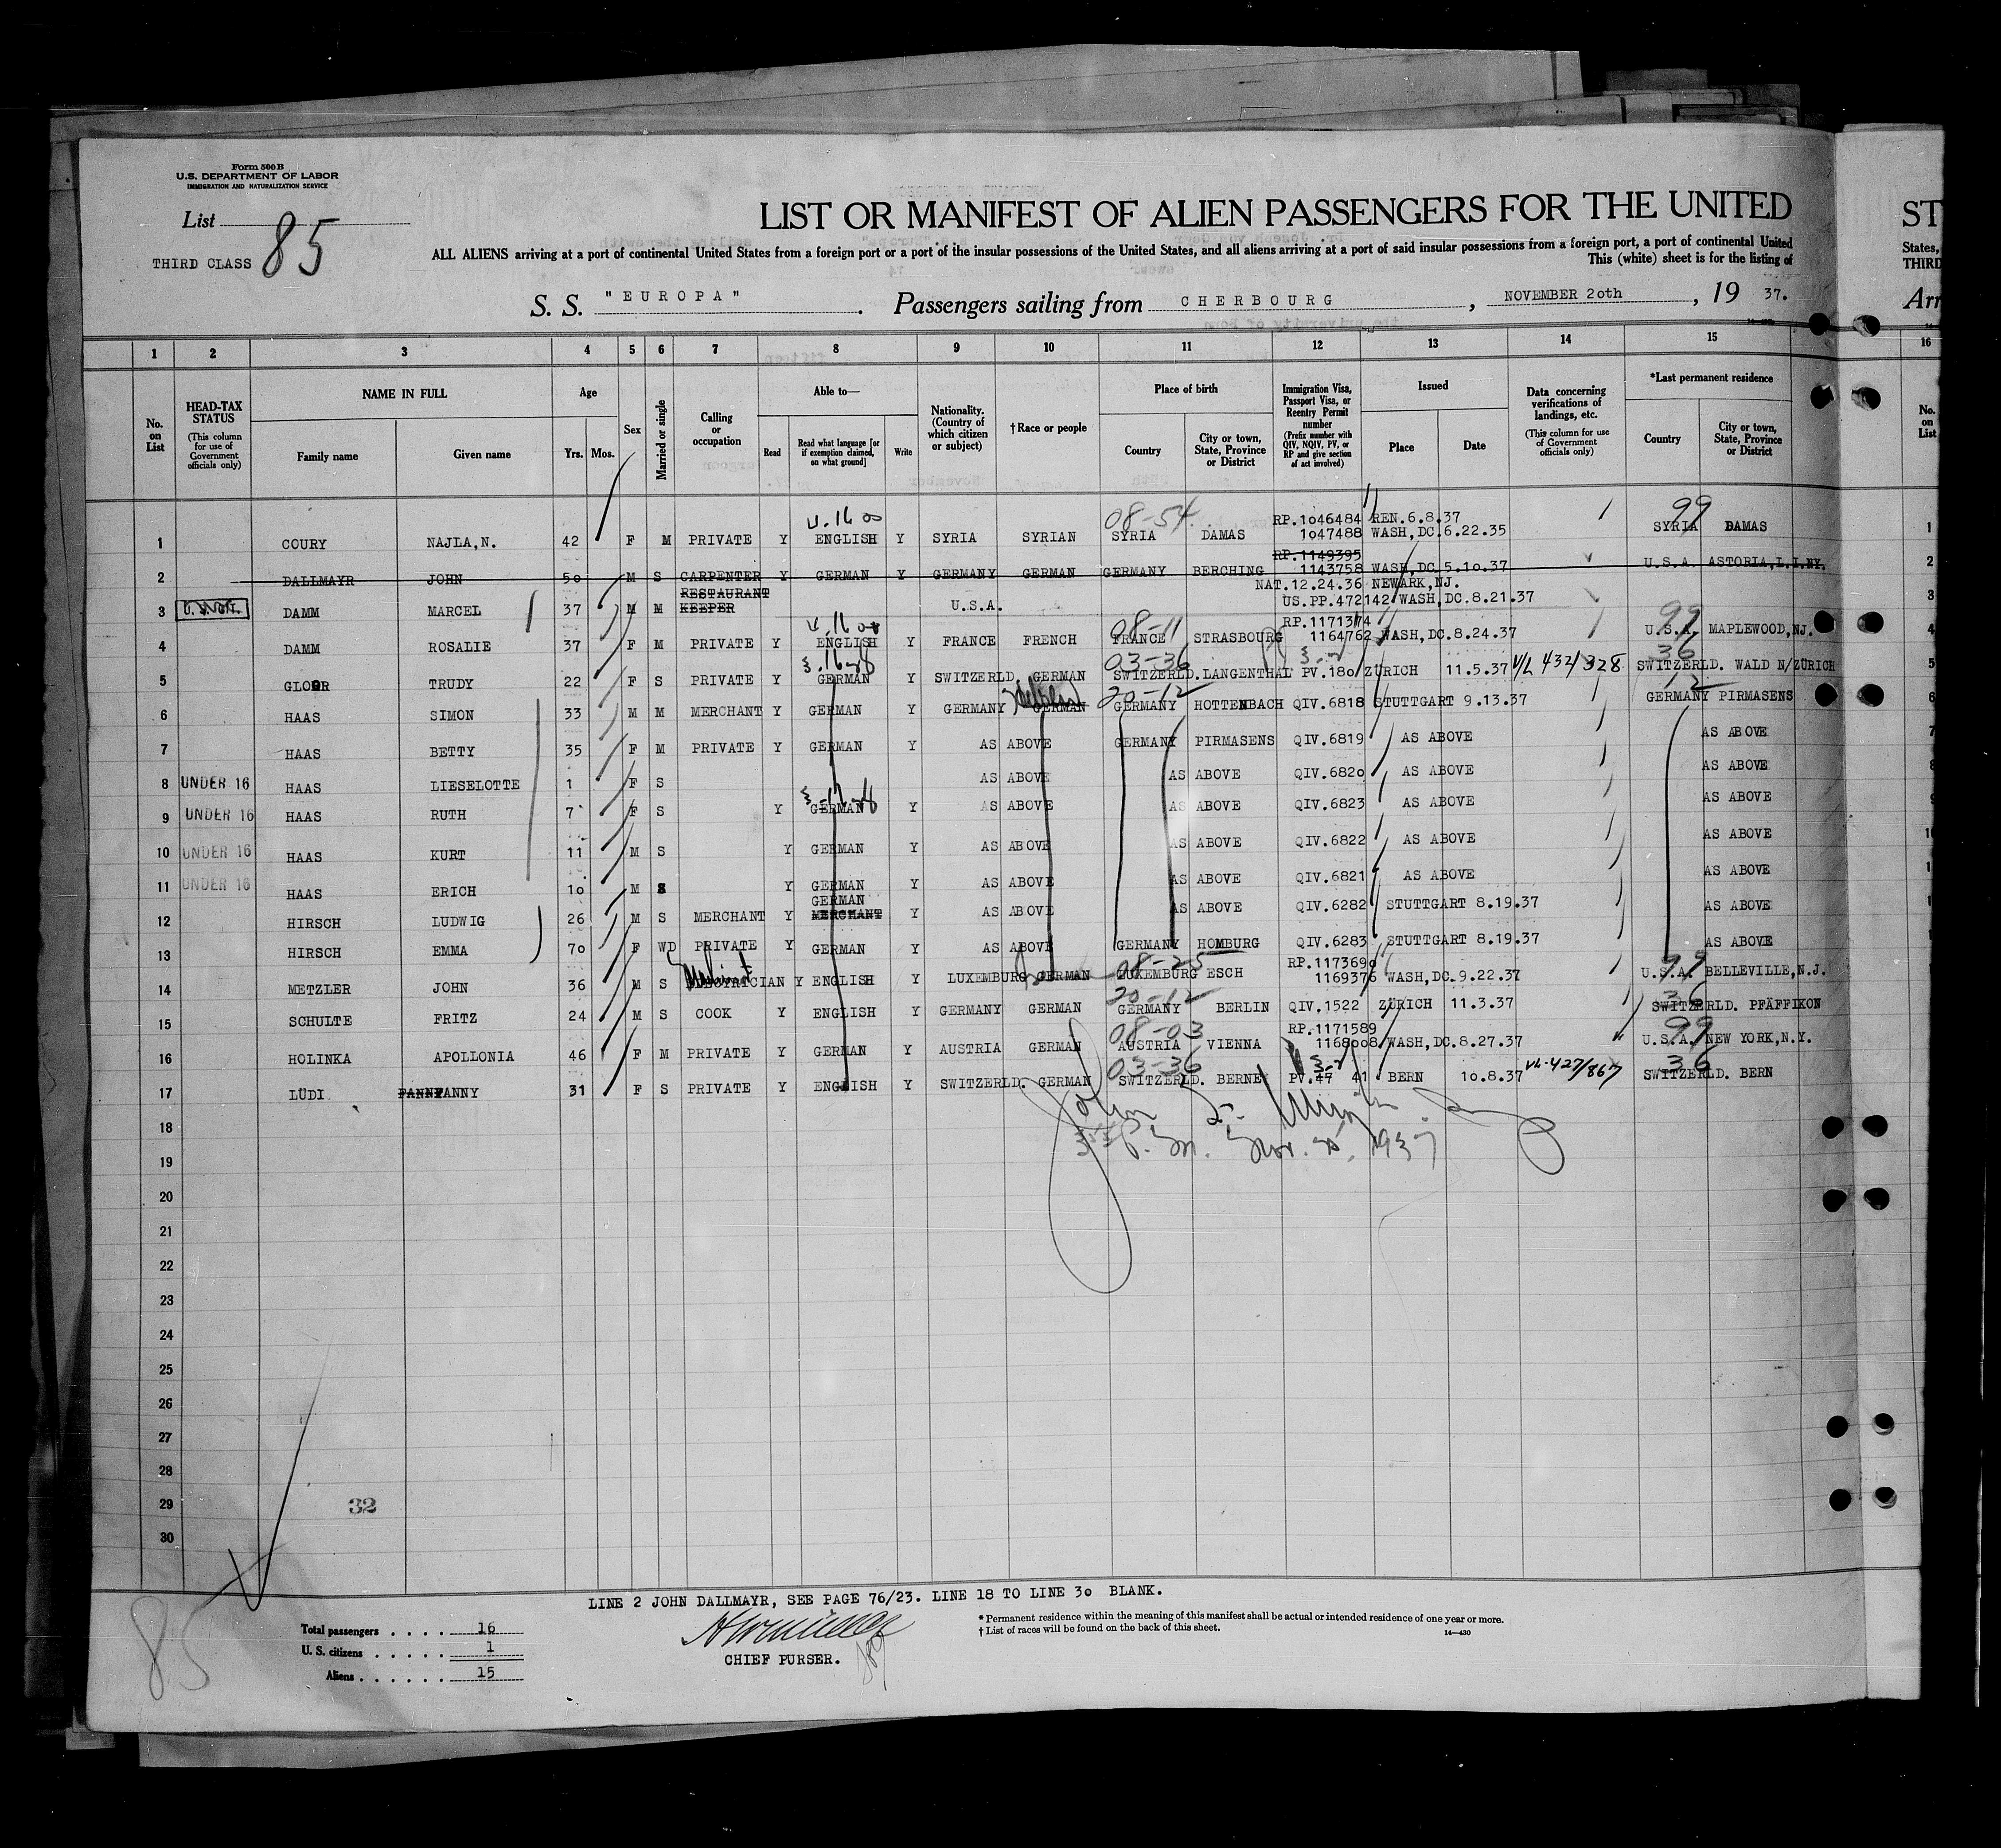 Form 500 B
U.S. DEPARTMENT OF LABOR
IMMIGRATION AND NATURALIZATION SERVICE
List 85
THIRD CLASS
LIST OR MANIFEST OF ALIEN PASSENGERS FOR THE UNITED
ST
ALL ALIENS arriving at a port of continental United States from a foreign port or a port of the insular possessions of the United States, and all aliens arriving at a port of said insular possessions from a foreign port, a port of continental United
States,
This (white) sheet is for the listing of
THIRD
S. S. "EUROPA". Passengers sailing from CHERBOURG, NOVEMBER 20th, 19 37.
Arr
1 2 3 4 5 6 7 8 9 10 11 12 13 14 15 16
No. on List
HEAD-TAX STATUS
(This column for use of Government officials only)
NAME IN FULL
Family name Given name
Age
Yrs. Mos.
Sex
Married or single
Calling or occupation
Able to—
Read
Read what language [or if exemption claimed, on what ground]
Write
Nationality. (Country of which citizen or subject)
†Race or people
Place of birth
Country
City or town, State, Province or District
Immigration Visa, Passport Visa, or Reentry Permit number
(Prefix number with QIV, NQIV, PV, or RP and give section of act involved)
Issued
Place Date
Data concerning verifications of landings, etc.
(This column for use of Government officials only)
*Last permanent residence
Country
City or town, State, Province or District
No. on List
08-54 99
RP.1046484 REN.6.8.37
1 COURY NAJLA,N. 42 F M PRIVATE Y ENGLISH Y SYRIA SYRIAN SYRIA DAMAS 1047488 WASH,DC.6.22.35 SYRIA DAMAS 1
RP.1149395
2 DALLMAYR JOHN 50 M S CARPENTER Y GERMAN Y GERMANY GERMAN GERMANY BERCHING 1143758 WASH,DC.5.10.37 U.S.A. ASTORIA,L.I.NY. 2
RESTAURANT NAT.12.24.36 NEWARK,NJ.
3 DAMM MARCEL 37 M M KEEPER U.S.A. US.PP.472142 WASH,DC.8.21.37 3
08-11 RP.1171374 99
4 DAMM ROSALIE 37 F M PRIVATE Y ENGLISH Y FRANCE FRENCH FRANCE STRASBOURG 1164762 WASH,DC.8.24.37 U.S.A. MAPLEWOOD,NJ. 4
03-36 36
5 GLOOR TRUDY 22 F S PRIVATE Y GERMAN Y SWITZERLD. GERMAN SWITZERLD.LANGENTHAL PV.180 ZÜRICH 11.5.37 V/L 432/328 SWITZERLD. WALD N/ZÜRICH 5
20-12 12
6 HAAS SIMON 33 M M MERCHANT Y GERMAN Y GERMANY GERMAN GERMANY HOTTENBACH QIV.6818 STUTTGART 9.13.37 GERMANY PIRMASENS 6
7 HAAS BETTY 35 F M PRIVATE Y GERMAN Y AS ABOVE GERMANY PIRMASENS QIV.6819 AS ABOVE AS ABOVE 7
8 UNDER 16 HAAS LIESELOTTE 1 F S AS ABOVE AS ABOVE QIV.6820 AS ABOVE AS ABOVE 8
9 UNDER 16 HAAS RUTH 7 F S Y GERMAN Y AS ABOVE AS ABOVE QIV.6823 AS ABOVE AS ABOVE
10 UNDER 16 HAAS KURT 11 M S Y GERMAN Y AS ABOVE AS ABOVE QIV.6822 AS ABOVE AS ABOVE
11 UNDER 16 HAAS ERICH 10 M S Y GERMAN Y AS ABOVE AS ABOVE QIV.6821 AS ABOVE AS ABOVE
GERMAN
12 HIRSCH LUDWIG 26 M S MERCHANT Y MERCHANT Y AS ABOVE AS ABOVE QIV.6282 STUTTGART 8.19.37 AS ABOVE
13 HIRSCH EMMA 70 F WD PRIVATE Y GERMAN Y AS ABOVE GERMANY HOMBURG QIV.6283 STUTTGART 8.19.37 AS ABOVE
08-25 RP.1173690 99
14 METZLER JOHN 36 M S ELECTRICIAN Y ENGLISH Y LUXEMBURG GERMAN LUXEMBURG ESCH 1169376 WASH,DC.9.22.37 U.S.A. BELLEVILLE,N.J.
20-12 36
15 SCHULTE FRITZ 24 M S COOK Y ENGLISH Y GERMANY GERMAN GERMANY BERLIN QIV.1522 ZÜRICH 11.3.37 SWITZERLD. PFÄFFIKON
08-03 RP.1171589 99
16 HOLINKA APOLLONIA 46 F M PRIVATE Y GERMAN Y AUSTRIA GERMAN AUSTRIA VIENNA 1168008 WASH,DC.8.27.37 U.S.A. NEW YORK,N.Y.
03-36 36
17 LÜDI FANNY 31 F S PRIVATE Y ENGLISH Y SWITZERLD. GERMAN SWITZERLD. BERNE PV.47 41 BERN 10.8.37 VL-427/867 SWITZERLD. BERN
18
19
20
21
22
23
24
25
26
27
28
29 32
30
LINE 2 JOHN DALLMAYR, SEE PAGE 76/23. LINE 18 TO LINE 30 BLANK.
Total passengers . . . . 16
U.S. citizens . . . . . 1
Aliens . . . . . . 15
85
CHIEF PURSER.
* Permanent residence within the meaning of this manifest shall be actual or intended residence of one year or more.
† List of races will be found on the back of this sheet.
14—430